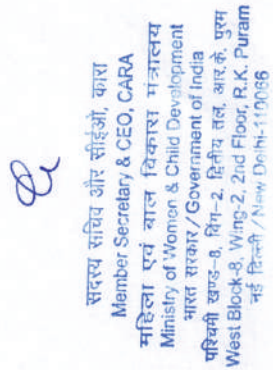 सदस्य सचिव और सीईओ, कारा
Member Secretary & CEO, CARA
महिला एवं बाल विकास मंत्रालय
Ministry of Women & Child Development
भारत सरकार/Government of India
पश्चिमी खण्ड-8, विंग-2, द्वितीय तल, आर.के. पुरम
West Block-8, Wing-2, 2nd Floor, R.K. Puram
नई दिल्ली/New Delhi-110066